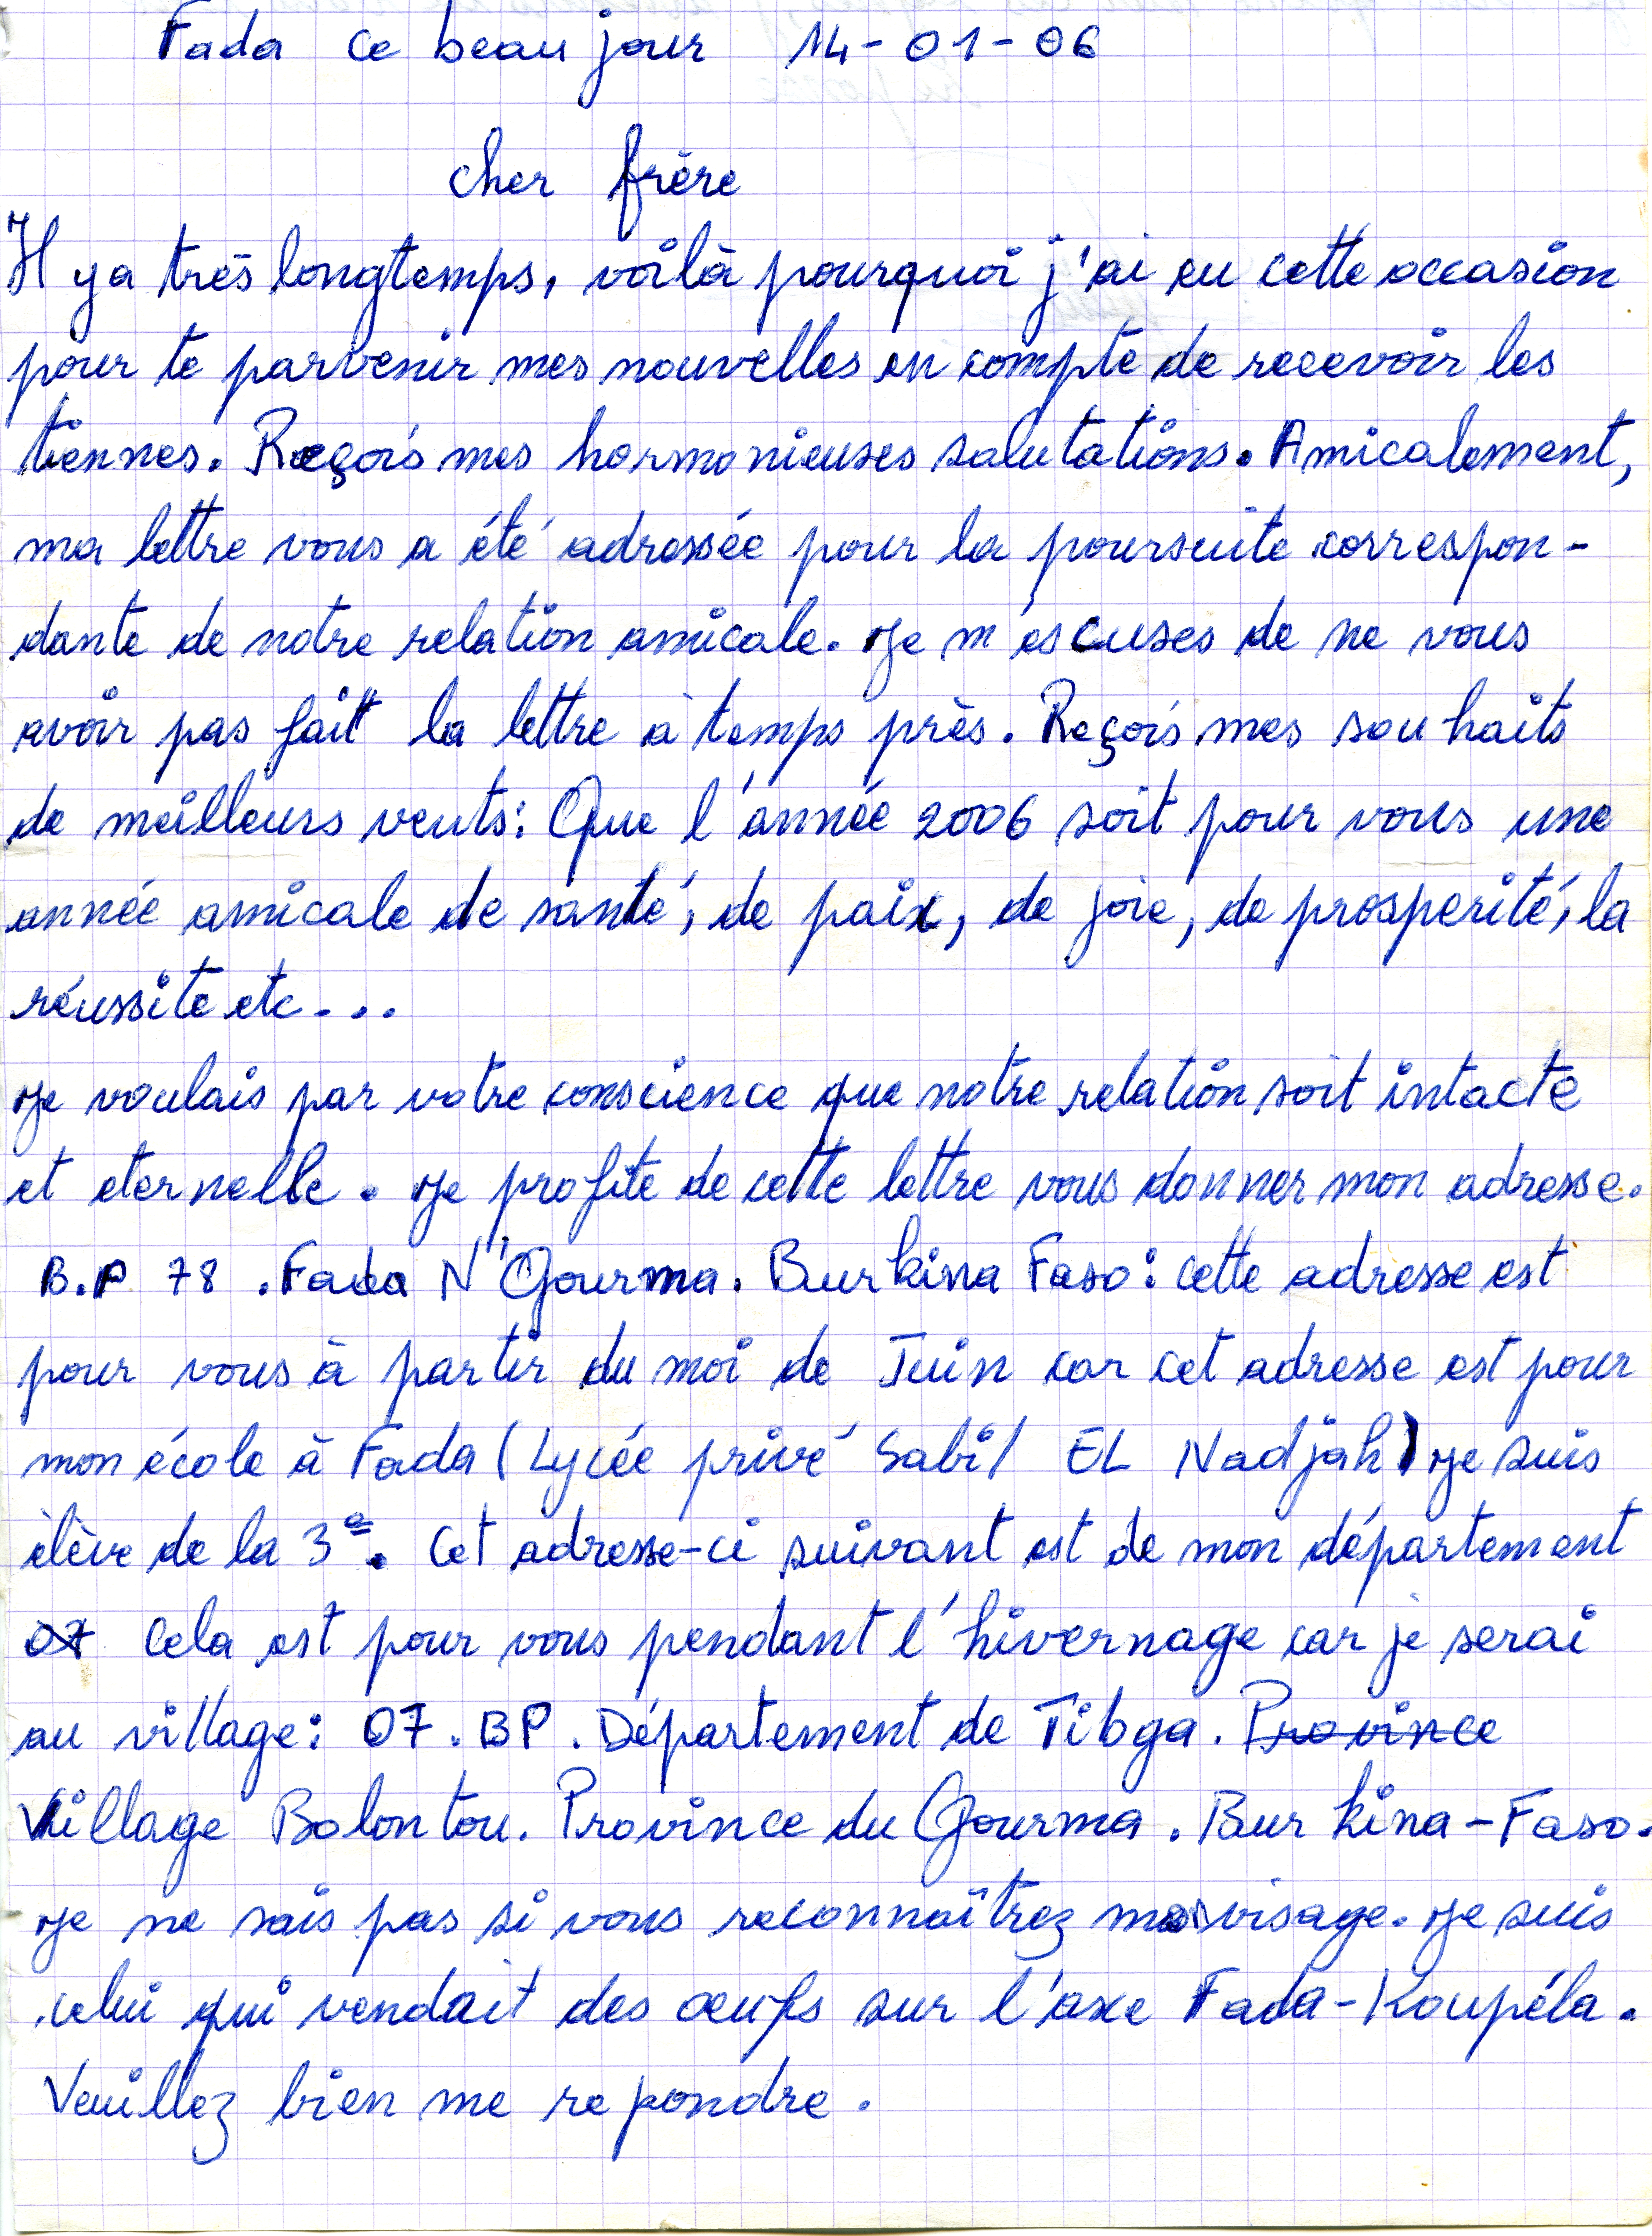 Fada ce beau jour 14-01-06
cher frère
Il y a très longtemps, voilà pourquoi j'ai eu cette occasion
pour te parvenir mes nouvelles en compte de recevoir les
tiennes. Reçois mes harmonieuses salutations. Amicalement,
ma lettre vous a été adressée pour la poursuite correspon-
dante de notre relation amicale. Je m'escuses de ne vous
avoir pas fait la lettre à temps près. Reçois mes souhaits
de meilleurs vents: Que l'année 2006 soit pour vous une
année amicale de santé, de paix, de joie, de prosperité, la
réussite etc...
Je voulais par votre conscience que notre relation soit intacte
et eternelle. Je profite de cette lettre vous donner mon adresse.
B.P 78 . Fada N'Gourma. Burkina Faso: cette adresse est
pour vous à partir du moi de Juin car cet adresse est pour
mon école à Fada (Lycée privé Sabil EL Nadjah) Je suis
élève de la 3e. Cet adresse-ci suivant est de mon département
07 Cela est pour vous pendant l'hivernage car je serai
au village: 07. BP. Département de Tibga. Province
Village Bolontou. Province du Gourma. Burkina-Faso.
Je ne sais pas si vous reconnaîtrez mon visage. Je suis
celui qui vendait des œufs sur l'axe Fada-Koupéla.
Veuillez bien me repondre.